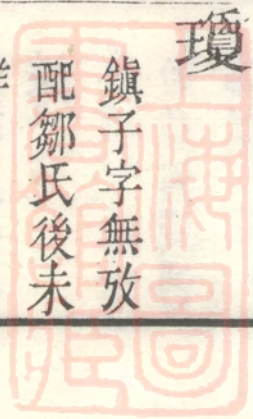 瓊
鎮子字無攷
配鄒氏後未